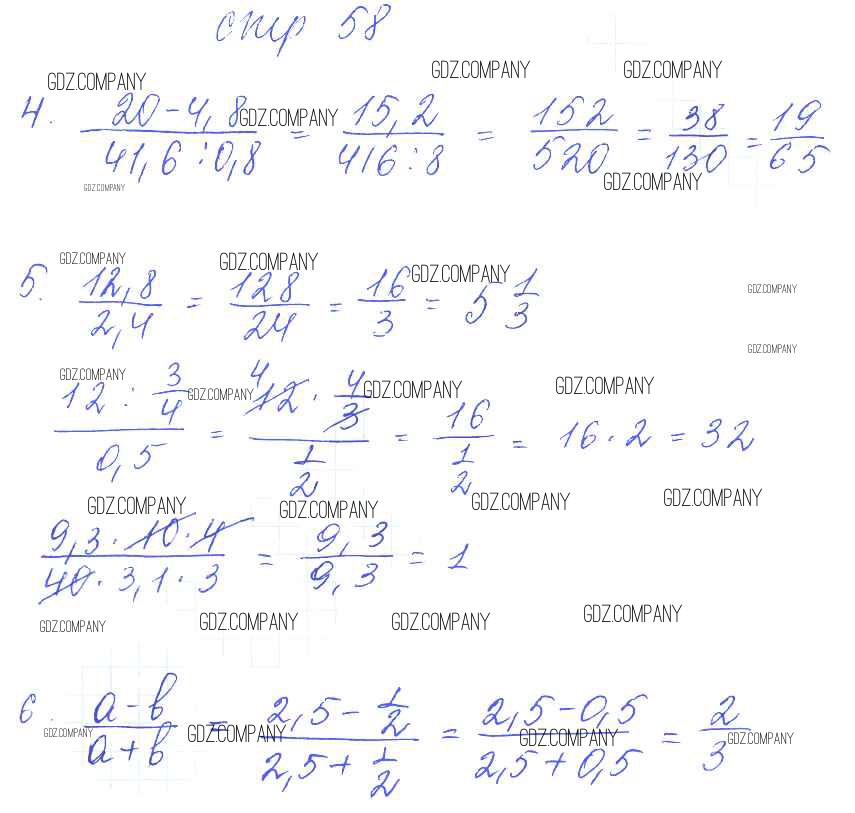 стр 58
GDZ.COMPANY GDZ.COMPANY GDZ.COMPANY
4. (20 - 4,8)/(41,6 : 0,8) = 15,2/(416 : 8) = 152/520 = 38/130 = 19/65
GDZ.COMPANY
GDZ.COMPANY GDZ.COMPANY
GDZ.COMPANY GDZ.COMPANY GDZ.COMPANY GDZ.COMPANY
5. 12,8/2,4 = 128/24 = 16/3 = 5 1/3
GDZ.COMPANY
GDZ.COMPANY GDZ.COMPANY GDZ.COMPANY GDZ.COMPANY
(12 : 3/4)/0,5 = (4 12 · 4/3)/(1/2) = 16/(1/2) = 16 · 2 = 32
GDZ.COMPANY GDZ.COMPANY GDZ.COMPANY GDZ.COMPANY
(9,3 · 10 · 4)/(40 · 3,1 · 3) = 9,3/9,3 = 1
GDZ.COMPANY GDZ.COMPANY GDZ.COMPANY GDZ.COMPANY
6. (a - b)/(a + b) = (2,5 - 1/2)/(2,5 + 1/2) = (2,5 - 0,5)/(2,5 + 0,5) = 2/3
GDZ.COMPANY GDZ.COMPANY GDZ.COMPANY GDZ.COMPANY